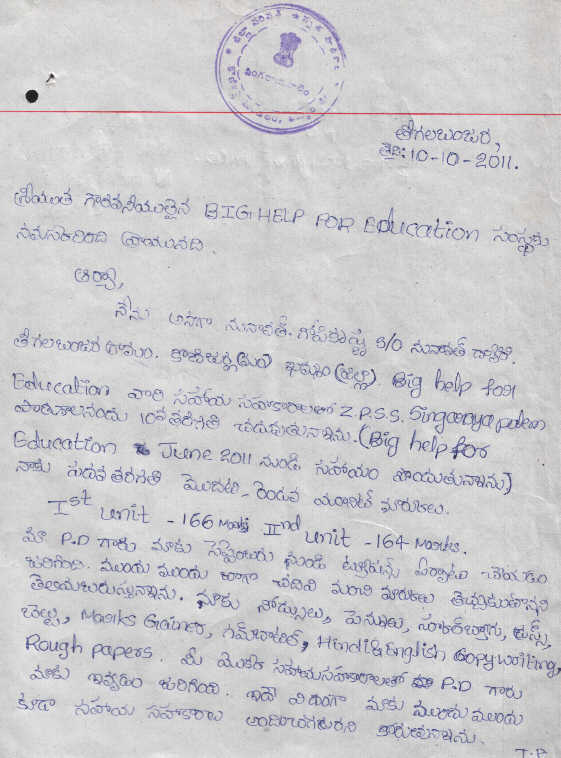 సింగరాయపాలెం
తీగలబంజర,
తేది: 10-10-2011.
శ్రీయుత గౌరవనీయులైన BIG HELP FOR Education సంస్థకు
నమస్కరించి వ్రాయునది.
ఆర్యా,
నేను అనగా నునావత్. గోపికృష్ణ S/O నునావత్
తీగలబంజర గ్రామం. (మం) ఖమ్మం (జిల్లా). Big help for
Education వారి సహాయ సహకారాలతో Z.P.S.S. Singaraya palem
పాఠశాలనందు 10వ తరగతి చదువుతున్నాను. (Big help for
Education June 2011 నుండి సహాయం పొందుతున్నాను)
నాకు పదవ తరగతి మొదటి, రెండవ యూనిట్ మార్కులు.
Ist unit - 166 Marks IInd unit - 164 Marks.
మా P.D గారు మాకు సెప్టెంబరు నుండి ట్యూషన్స్ ఏర్పాటు చేయడం
జరిగింది. ముందు ముందు బాగా చదివి మంచి మార్కులు తెచ్చుకుంటానని
తెలియజేస్తున్నాను. మాకు నోట్సులు, పెన్నులు, స్కూల్ బ్యాగు, టై,
బెల్టు, Marks Gainer, Hindi & English Copywriting,
Rough papers. మీ యొక్క సహాయసహకారాలతో మా P.D గారు
మాకు ఇవ్వడం జరిగింది. ఇదే విధంగా మాకు ముందు ముందు
కూడా సహాయ సహకారాలు అందించగలరని కోరుతున్నాను.